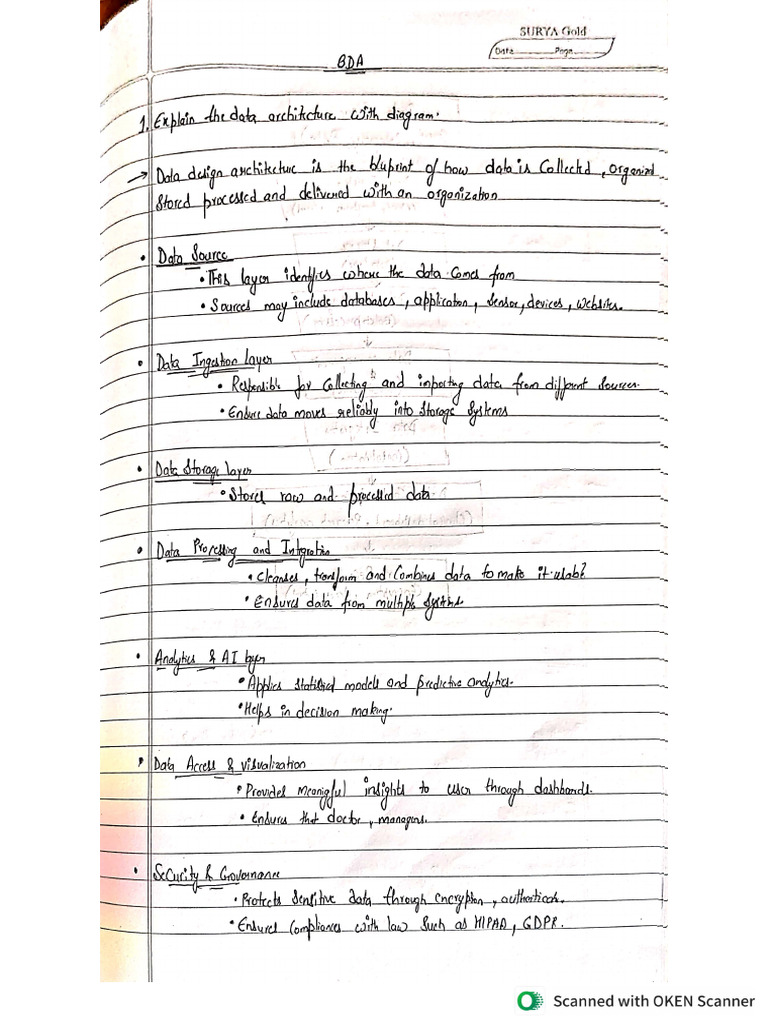 SURYA Gold
Date Page
BDA
1. Explain the data architecture with diagram.
→ Data design architecture is the bluprint of how data is Collectd, organized
stored processed and delivered with an organization
• Data Source
• This layer identifies where the data comes from
• Sources may include databases, application, sensor, devices, websites.
• Data Ingestion layer
• Responsible for collecting and importing data from different sources.
• Ensure data moves reliably into storage systems
• Data Storage layer
• Stores raw and processed data
• Data Processing and Integration
• Cleanses, transform and combines data to make it usable
• Ensures data from multiple systems.
• Analytics & AI layer
• Applies statistical models and predictive analytics.
• Helps in decision making.
• Data Access & visualization
• Provides meaningful insights to user through dashboards.
• Ensures that doctor, managers.
• Security & Governance
• Protects sensitive data through encryption,
• Ensures compliances with law such as HIPAA, GDPR.
Scanned with OKEN Scanner